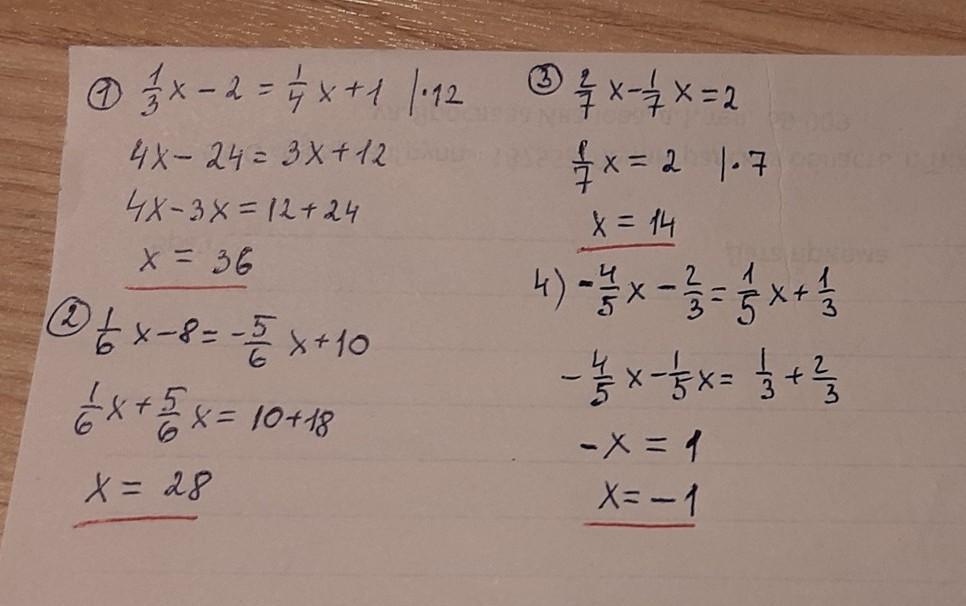 ① 1/3 x - 2 = 1/4 x + 1 | · 12
4x - 24 = 3x + 12
4x - 3x = 12 + 24
x = 36
② 1/6 x - 8 = - 5/6 x + 10
1/6 x + 5/6 x = 10 + 18
x = 28
③ 2/7 x - 1/7 x = 2
1/7 x = 2 | · 7
x = 14
4) - 4/5 x - 2/3 = 1/5 x + 1/3
- 4/5 x - 1/5 x = 1/3 + 2/3
- x = 1
x = - 1